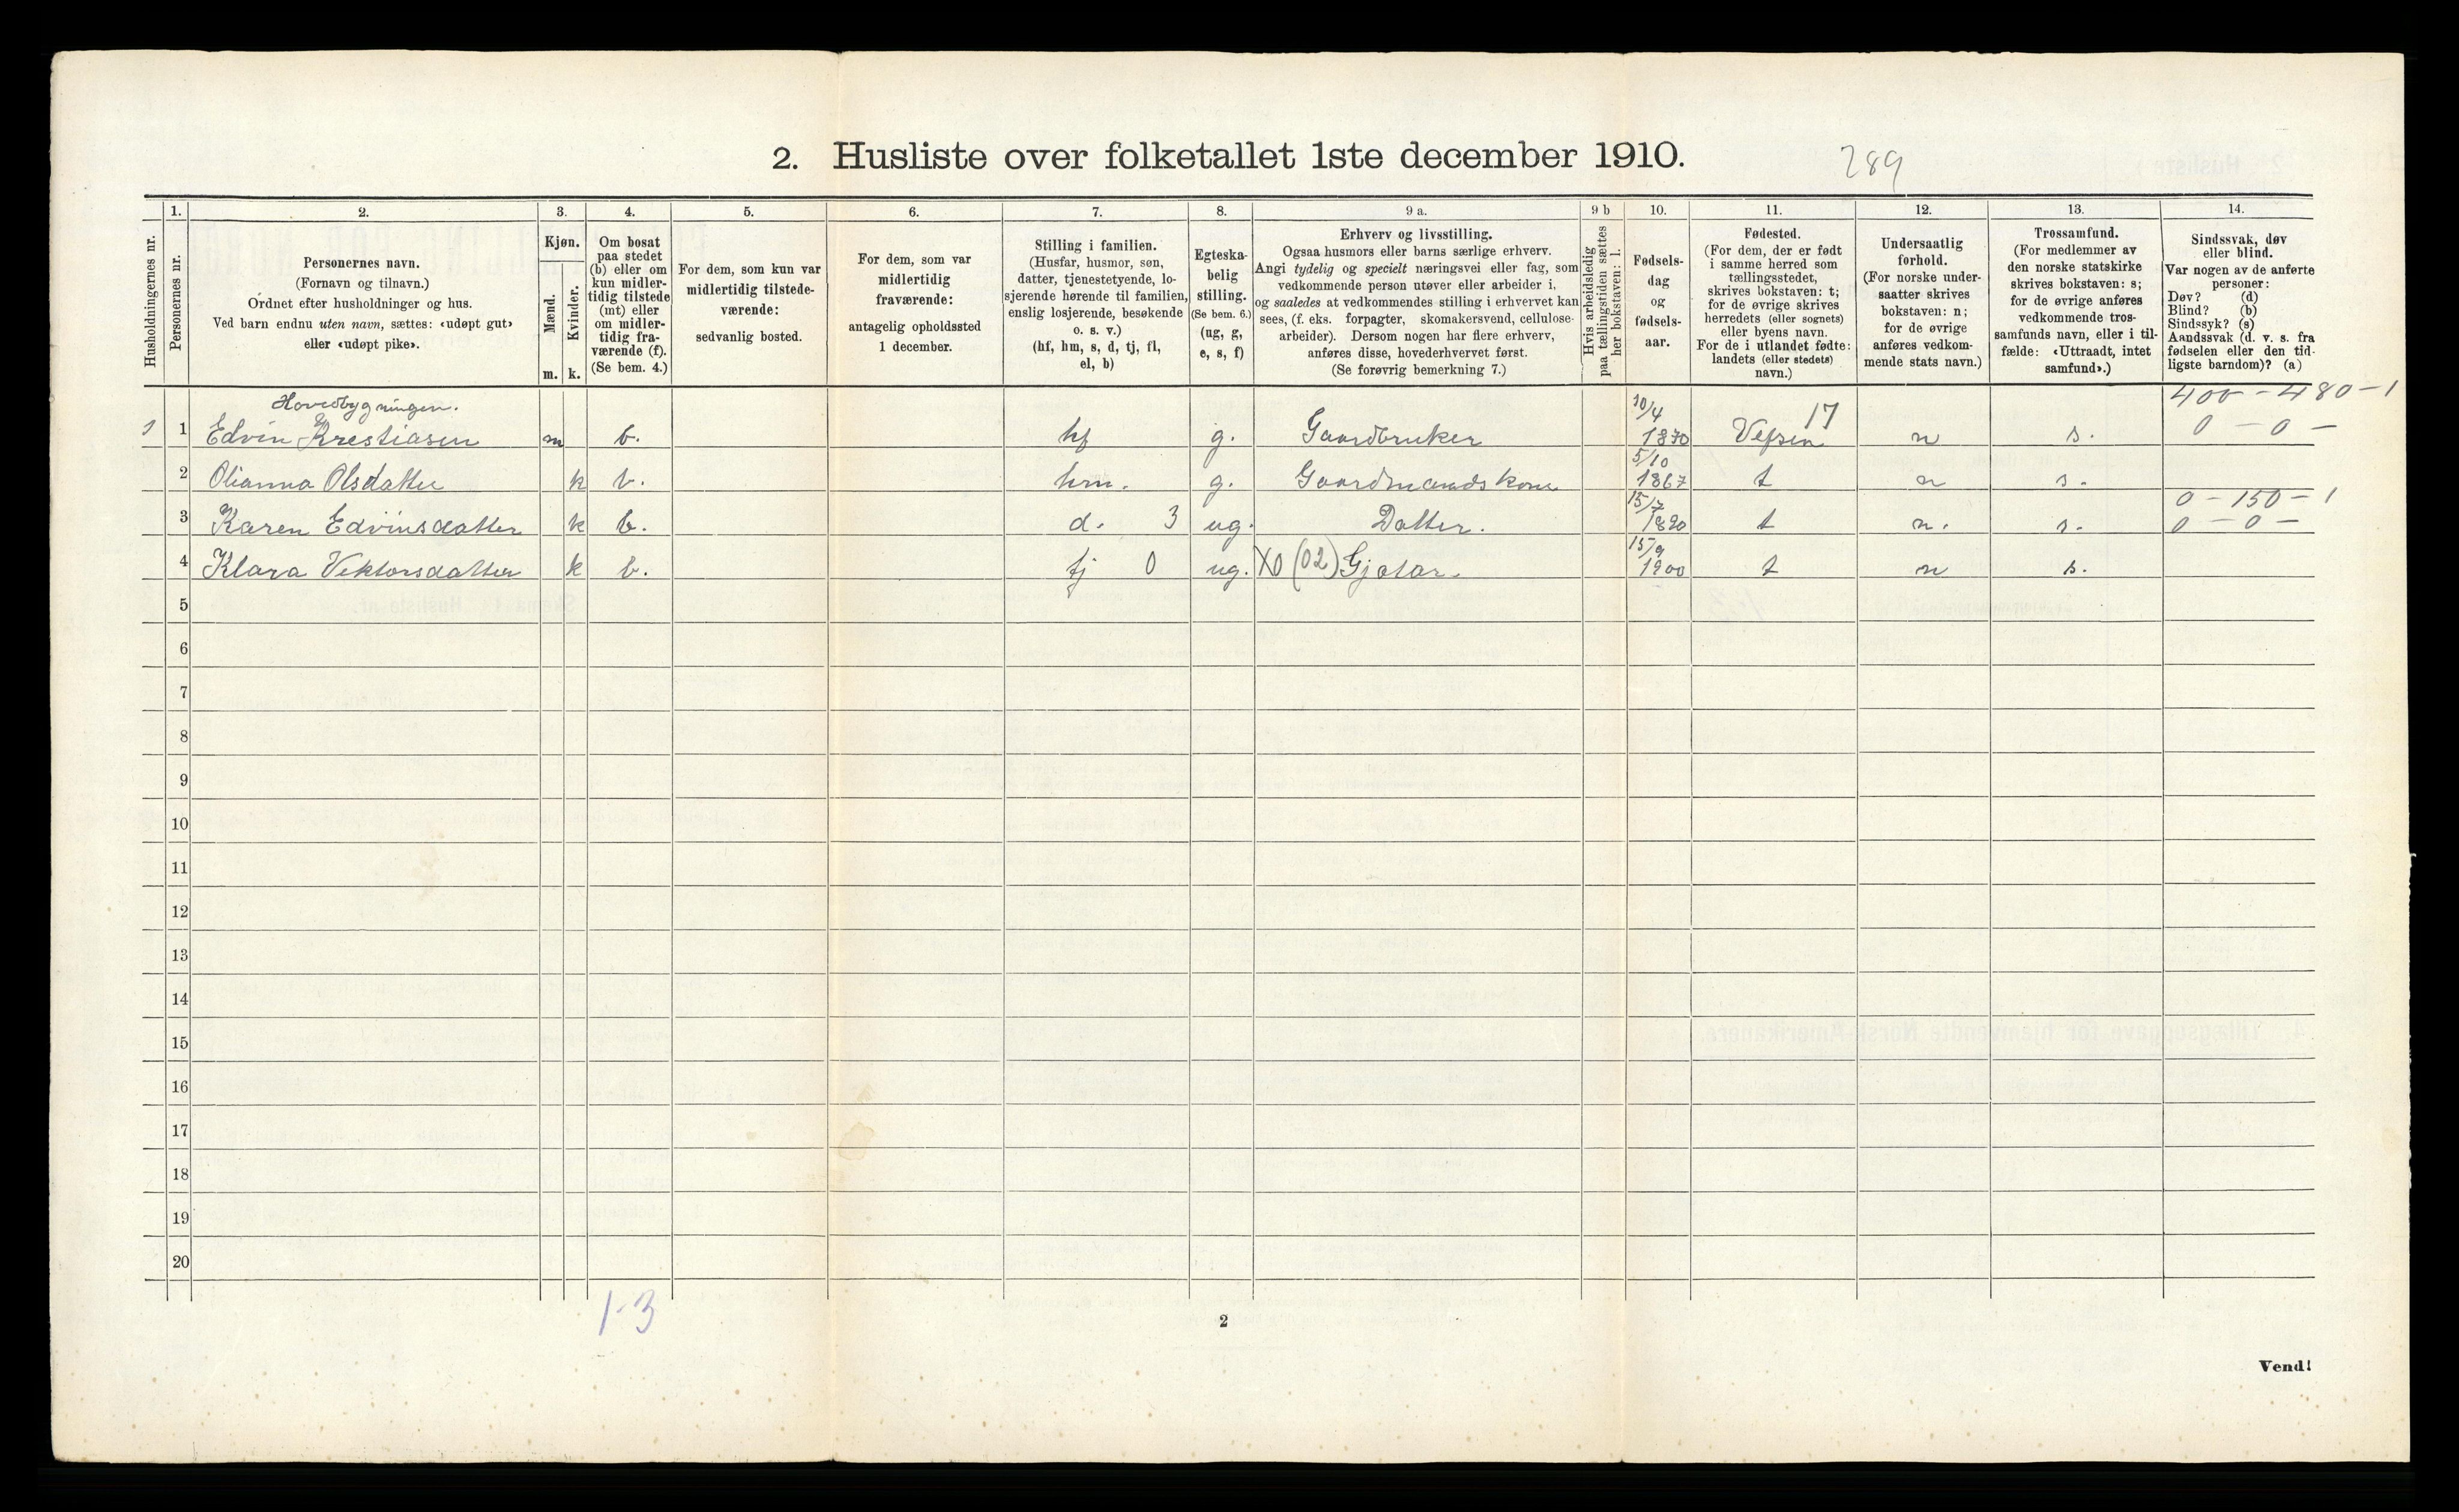 2. Husliste over folketallet 1ste december 1910.
289
1. 2. 3. 4. 5. 6. 7. 8. 9 a. 9 b 10. 11. 12. 13. 14.
Husholdningernes nr.
Personernes nr.
Personernes navn.
(Fornavn og tilnavn.)
Ordnet efter husholdninger og hus.
Ved barn endnu uten navn, sættes: «udøpt gut»
eller «udøpt pike».
Kjøn.
Mænd.
Kvinder.
m. k.
Om bosat
paa stedet
(b) eller om
kun midler-
tidig tilstede
(mt) eller
om midler-
tidig fra-
værende (f).
(Se bem. 4.)
For dem, som kun var
midlertidig tilstede-
værende:
sedvanlig bosted.
For dem, som var
midlertidig
fraværende:
antagelig opholdssted
1 december.
Stilling i familien.
(Husfar, husmor, søn,
datter, tjenestetyende, lo-
sjerende hørende til familien,
enslig losjerende, besøkende
o. s. v.)
(hf, hm, s, d, tj, fl,
el, b)
Egteska-
belig
stilling.
(Se bem. 6.)
(ug, g,
e, s, f)
Erhverv og livsstilling.
Ogsaa husmors eller barns særlige erhverv.
Angi tydelig og specielt næringsvei eller fag, som
vedkommende person utøver eller arbeider i,
og saaledes at vedkommendes stilling i erhvervet kan
sees, (f. eks. forpagter, skomakersvend, cellulose-
arbeider). Dersom nogen har flere erhverv,
anføres disse, hovederhvervet først.
(Se forøvrig bemerkning 7.)
Hvis arbeidsledig
paa tællingstiden sættes
her bokstaven: l.
Fødsels-
dag
og
fødsels-
aar.
Fødested.
(For dem, der er født
i samme herred som
tællingsstedet,
skrives bokstaven: t;
for de øvrige skrives
herredets (eller sognets)
eller byens navn.
For de i utlandet fødte:
landets (eller stedets)
navn.)
Undersaatlig
forhold.
(For norske under-
saatter skrives
bokstaven: n;
for de øvrige
anføres vedkom-
mende stats navn.)
Trossamfund.
(For medlemmer av
den norske statskirke
skrives bokstaven: s;
for de øvrige anføres
vedkommende tros-
samfunds navn, eller i til-
fælde: «Uttraadt, intet
samfund».)
Sindssvak, døv
eller blind.
Var nogen av de anførte
personer:
Døv? (d)
Blind? (b)
Sindssyk? (s)
Aandssvak (d. v. s. fra
fødselen eller den tid-
ligste barndom)? (a)
Hovedbygningen. 10/4 17 400 - 480 - 1
1 1 Edvin Krestiasen m b. hf g. Gaardbruker 1870 Vefsen n s. 0 - 0 -
5/10
2 Olianna Olsdatter k b. hm. g. Gaardmandskone 1867 t n s.
15/7 0 - 150 - 1
3 Karen Edvinsdatter k b. d. 3 ug. Datter. 1890 t n. s. 0 - 0 -
15/9
4 Klara Vektorsdatter k b. tj 0 ug. X0 (02) Gjætar. 1900 t n s.
5
6
7
8
9
10
11
12
13
14
15
16
17
18
19
20
1-3
2
Vend!